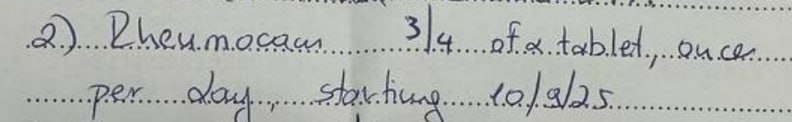 2) Rheumocam 3/4 of a tablet, once
per day, starting 10/9/25